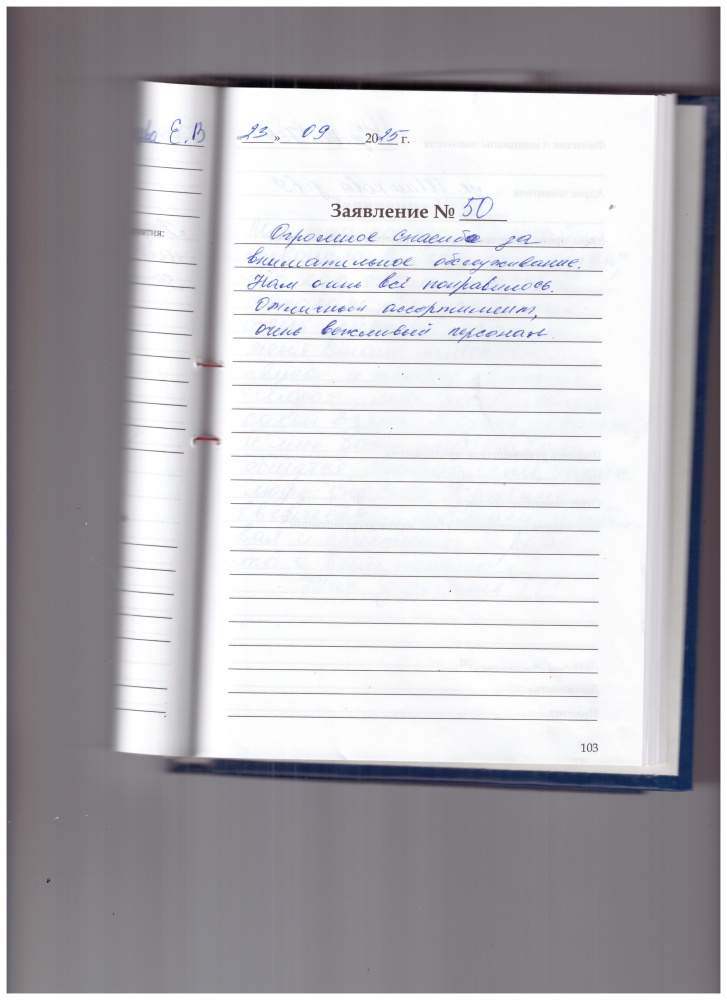 Е.В
23 » 09 2025 г.
Заявление № 50
Огромное спасибо за
внимательное обслуживание.
Нам очень всё понравилось.
Отличный ассортимент,
очень вежливый персонал.
103